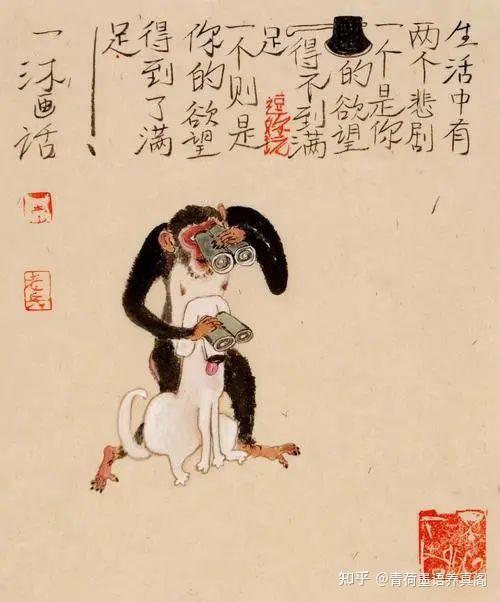 生活中有
两个悲剧
一个是你
的欲望
得不到满
足
一个则是
你的欲望
得到了满
足
一沐画话
知乎 @青荷墨语养真阁